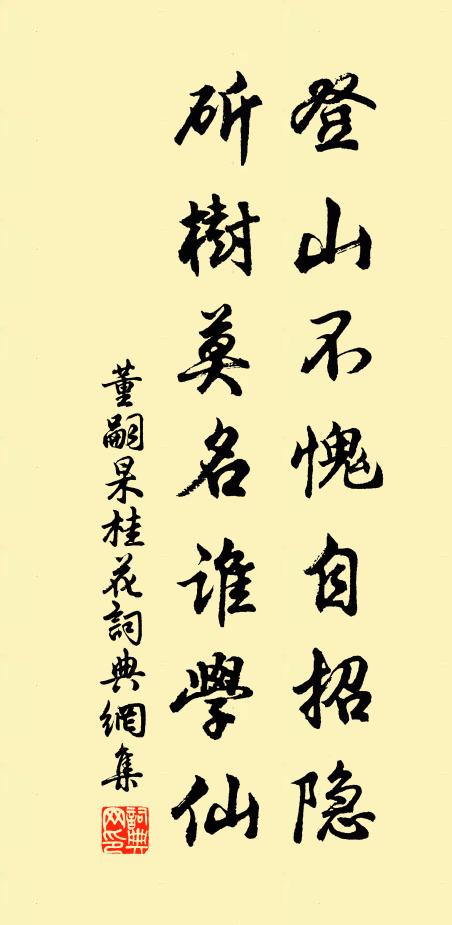 登山不愧自招隐
斫樹莫名谁學仙
董嗣杲桂花詞典網集
詞典网印